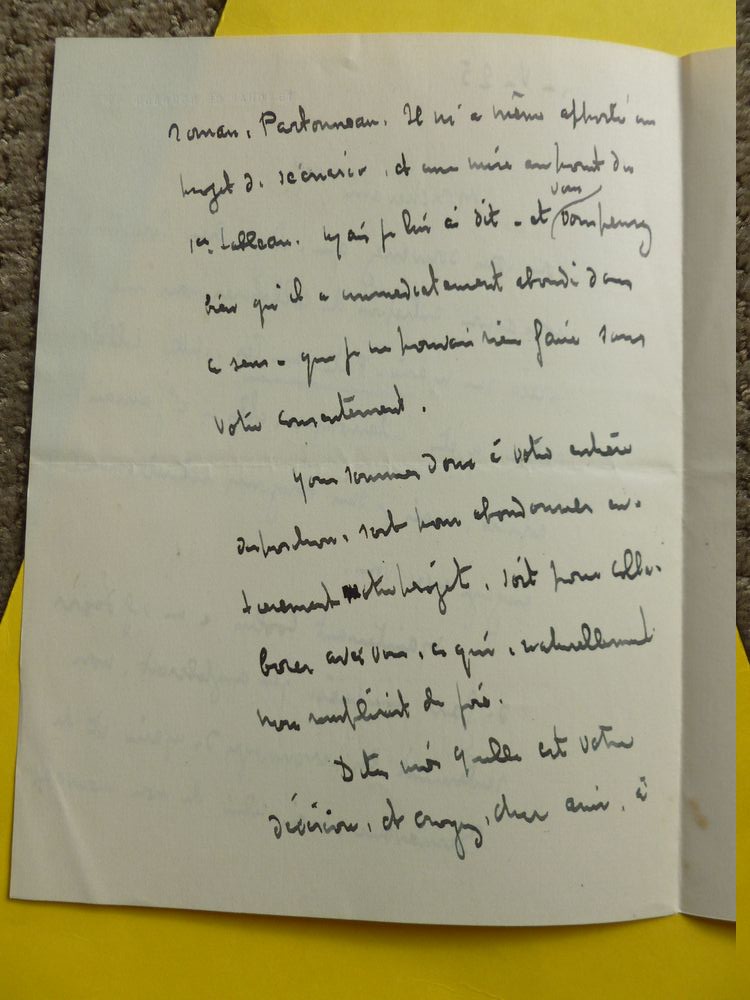 roman, Partonneau. Il m'a même apporté un
projet de scénario, et une mise au point du
1er tableau. Mais je lui ai dit - et vous pensez
bien qu'il a immédiatement abondé dans
ce sens - que je ne pouvais rien faire sans
votre consentement.
Nous sommes donc à votre entière
disposition, soit pour abandonner en-
tièrement notre projet, soit pour colla-
borer avec vous, ce qui, naturellement
nous remplirait de joie.
Dites moi quelle est votre
décision, et croyez, cher ami, à